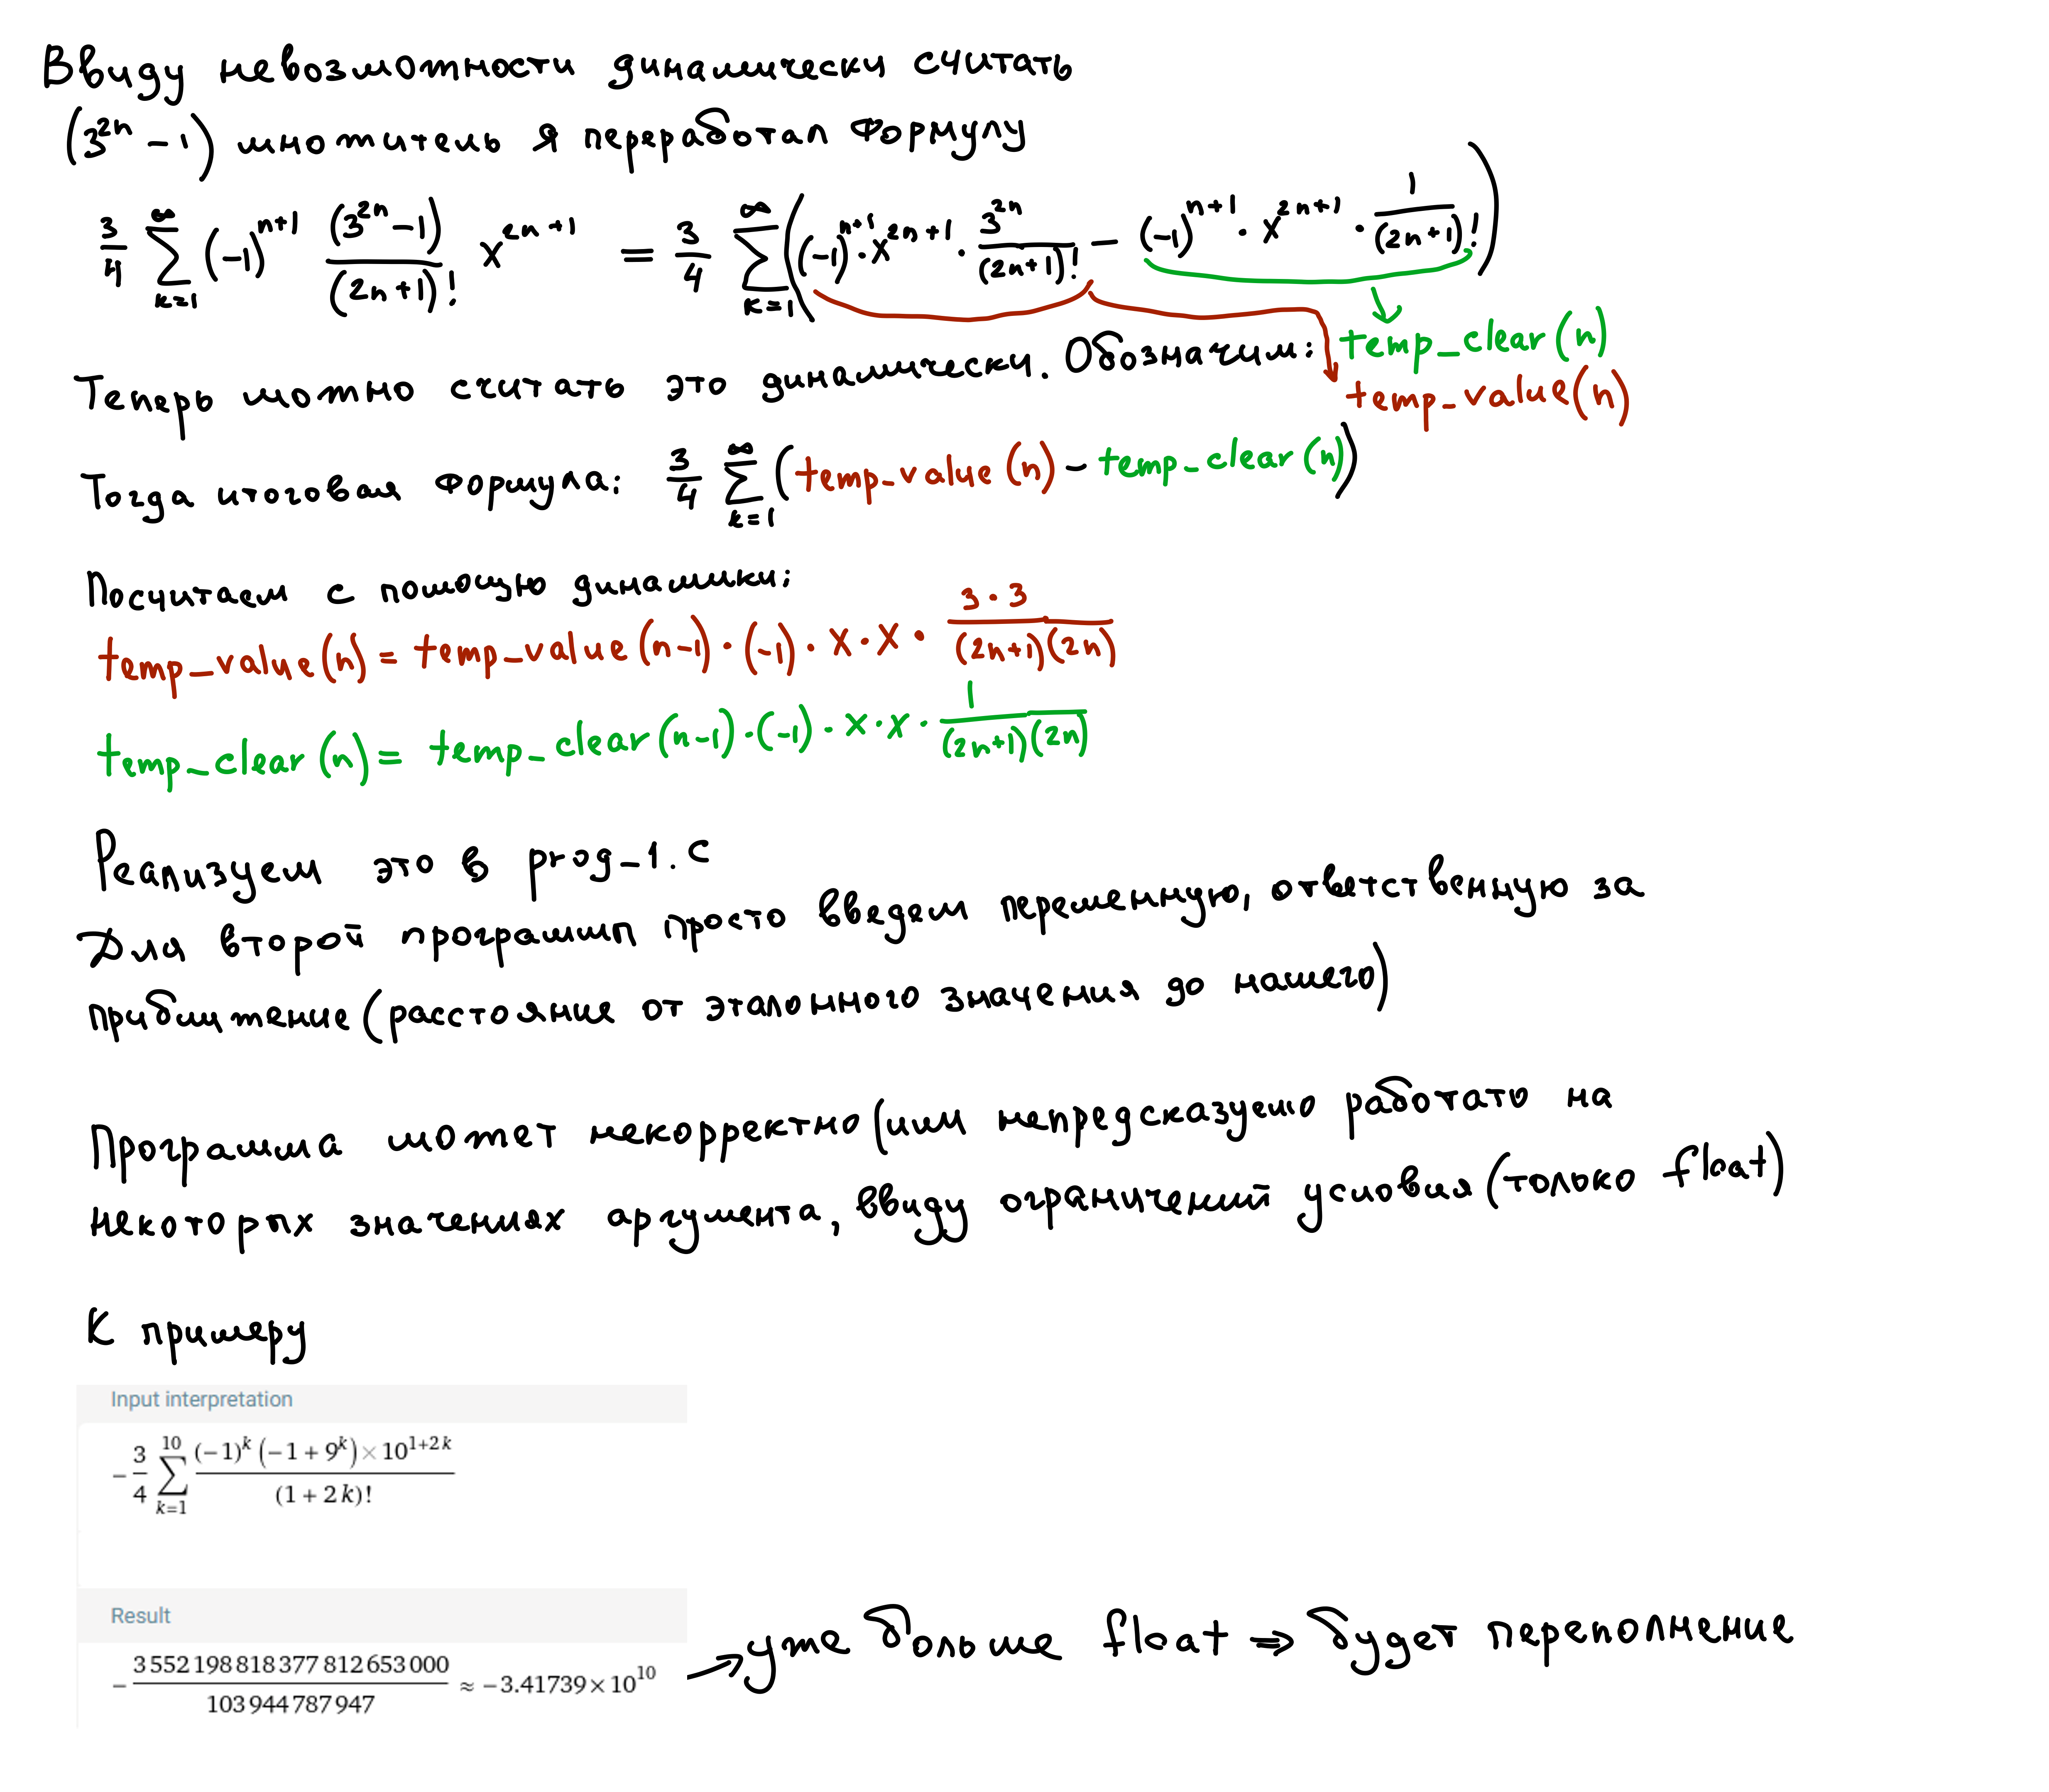 Ввиду невозможности динамически считать
(3^{2n} - 1) множитель я переработал формулу
\frac{3}{4} \sum_{k=1}^{\infty} (-1)^{n+1} \frac{(3^{2n}-1)}{(2n+1)!} x^{2n+1} = \frac{3}{4} \sum_{k=1}^{\infty} ((-1)^{n+1} · x^{2n+1} · \frac{3^{2n}}{(2n+1)!} - (-1)^{n+1} · x^{2n+1} · \frac{1}{(2n+1)!})
temp_clear(n)
Теперь можно считать это динамически. Обозначим:
temp_value(n)
Тогда итоговая формула: \frac{3}{4} \sum_{k=1}^{\infty} (temp_value(n) - temp_clear(n))
Посчитаем с помощью динамики:
temp_value(n) = temp_value(n-1) · (-1) · x · x · \frac{3 · 3}{(2n+1)(2n)}
temp_clear(n) = temp_clear(n-1) · (-1) · x · x · \frac{1}{(2n+1)(2n)}
Реализуем это в prog_1.c
Для второй программы просто введем переменную, ответственную за
приближение (расстояние от эталонного значения до нашего)
Программа может некорректно (или непредсказуемо работать на
некоторых значениях аргумента, ввиду ограничений условия (только float)
К примеру
Input interpretation
-\frac{3}{4} \sum_{k=1}^{10} \frac{(-1)^k (-1 + 9^k) × 10^{1+2k}}{(1 + 2k)!}
Result
-\frac{3 552 198 818 377 812 653 000}{103 944 787 947} ≈ -3.41739 × 10^{10} → уже больше float ⇒ будет переполнение